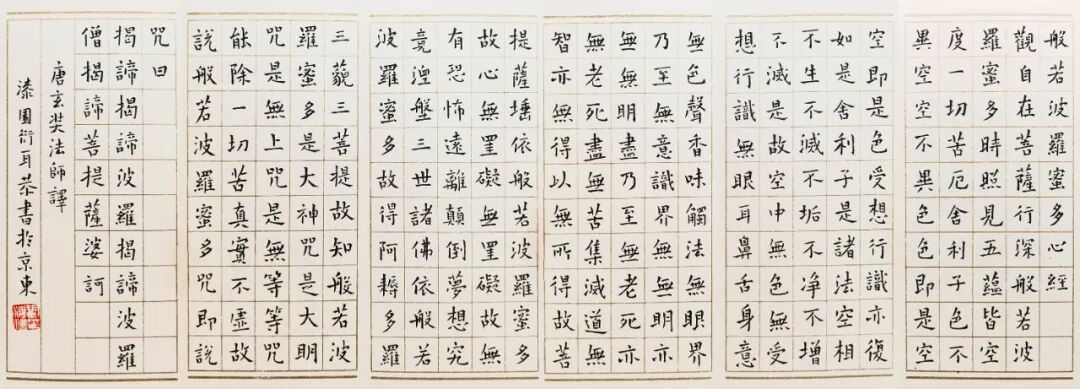 般若波羅蜜多心經
觀自在菩薩行深般若波
羅蜜多時照見五蘊皆空
度一切苦厄舍利子色不
異空空不異色色即是空
空即是色受想行識亦復
如是舍利子是諸法空相
不生不滅不垢不淨不增
不減是故空中無色無受
想行識無眼耳鼻舌身意
無色聲香味觸法無眼界
乃至無意識界無無明亦
無無明盡乃至無老死亦
無老死盡無苦集滅道無
智亦無得以無所得故菩
提薩埵依般若波羅蜜多
故心無罣礙無罣礙故無
有恐怖遠離顛倒夢想究
竟涅槃三世諸佛依般若
波羅蜜多故得阿耨多羅
三藐三菩提故知般若波
羅蜜多是大神咒是大明
咒是無上咒是無等等咒
能除一切苦真實不虛故
說般若波羅蜜多咒即說
咒曰
揭諦揭諦波羅揭諦波羅
僧揭諦菩提薩婆訶
唐玄奘法師譯
漆園衍耳恭書於京東